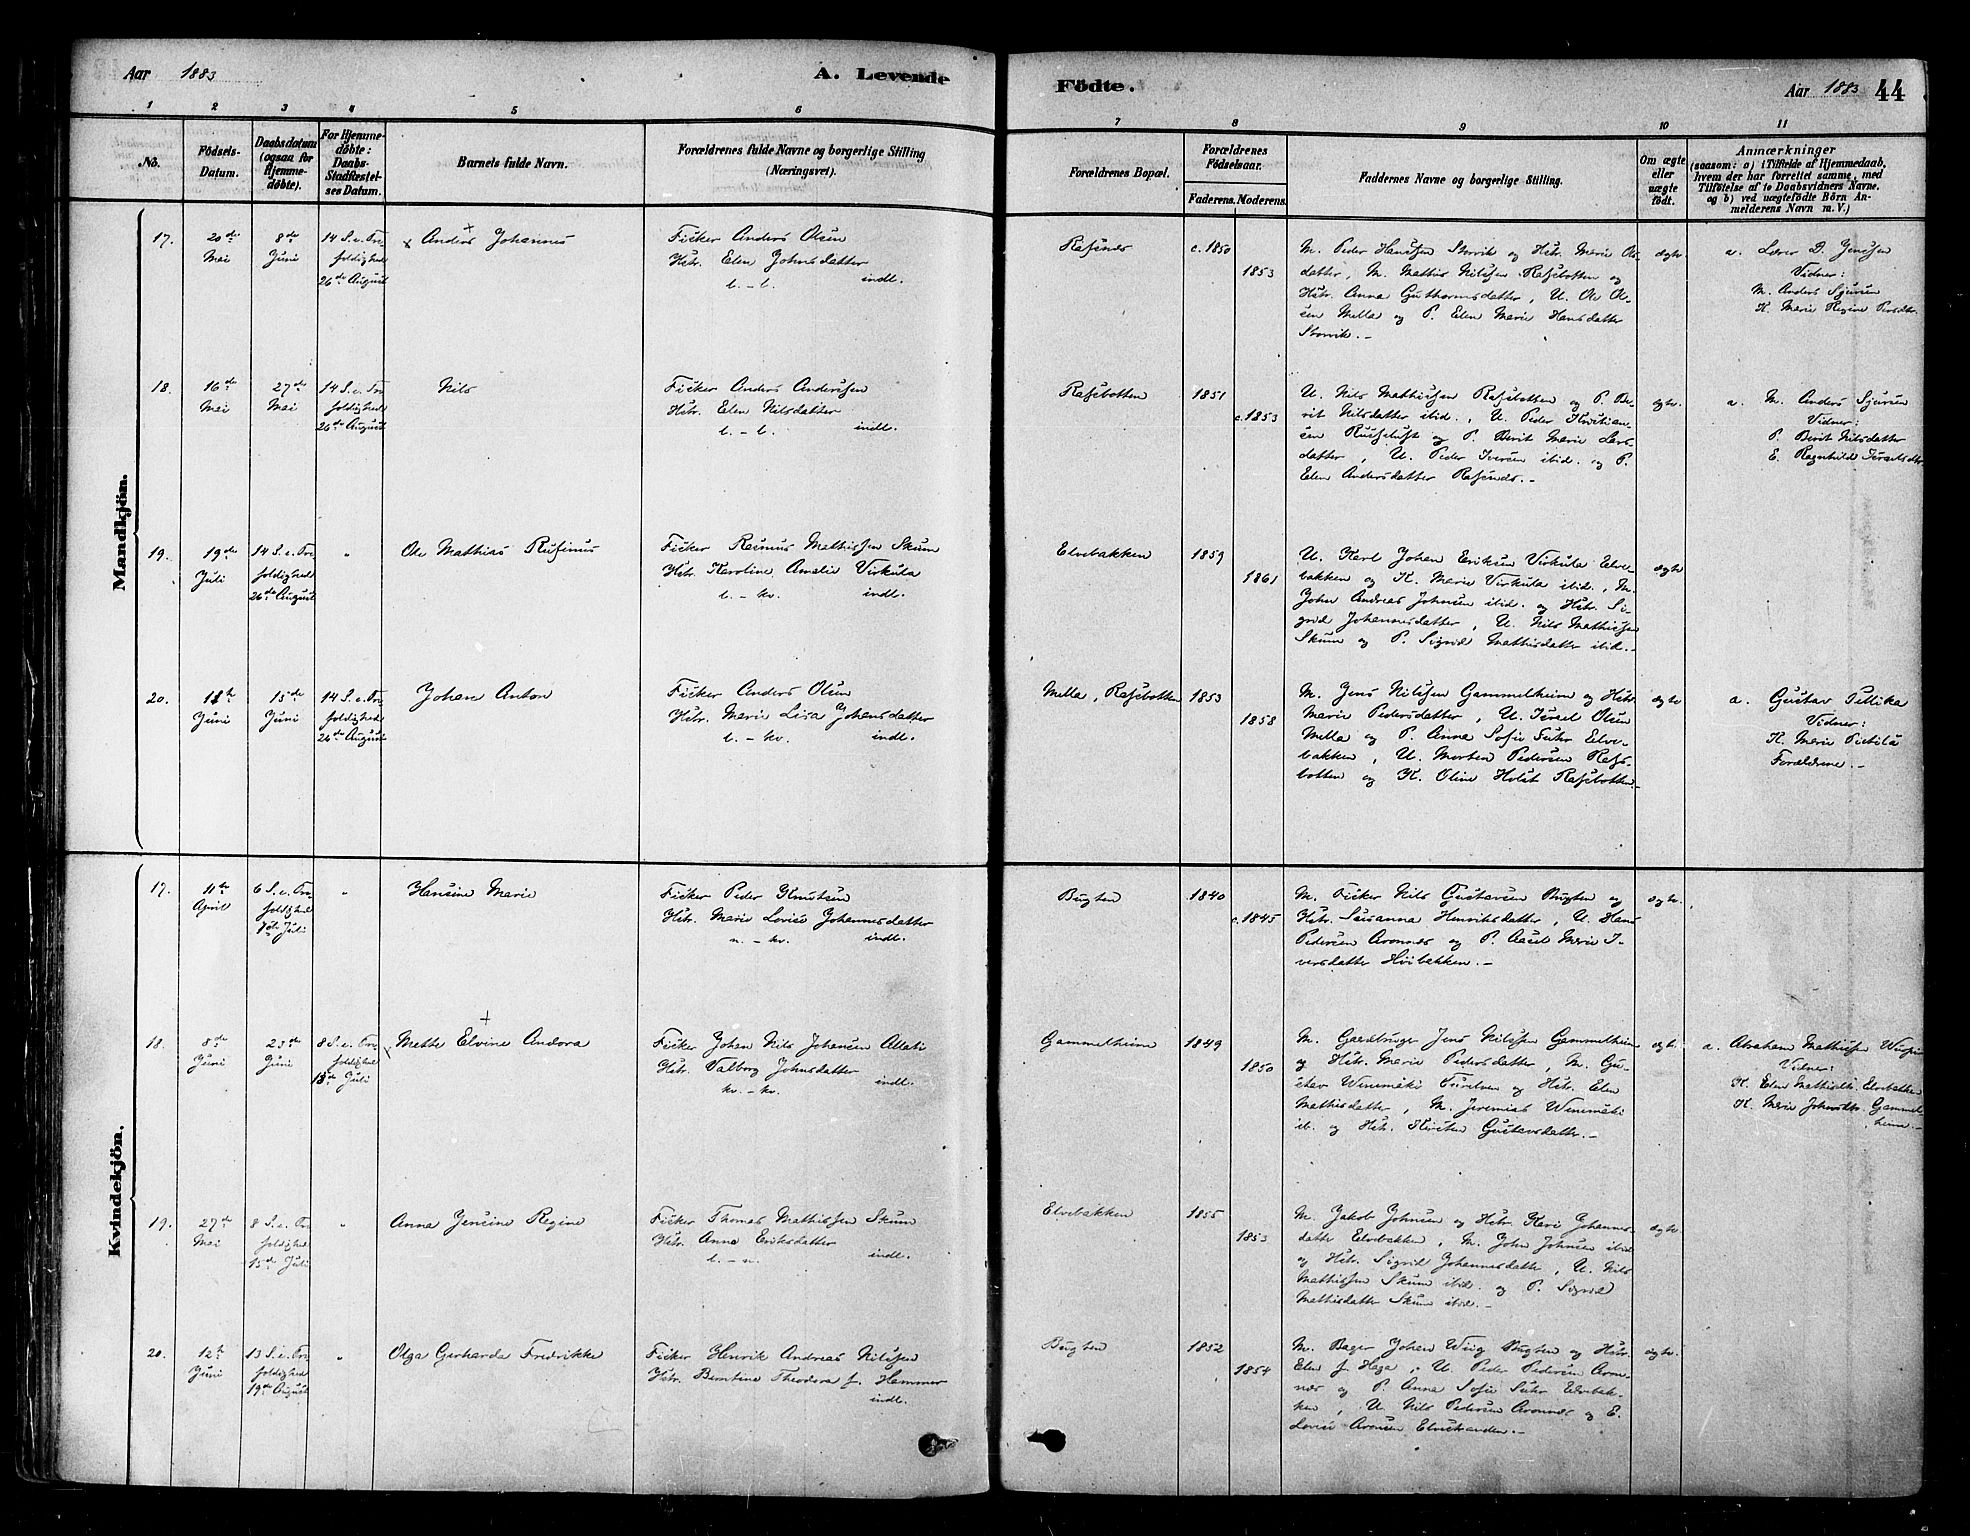 Aar 1883
A. Levende
Födte.
Aar 1883
44
1 2 3 4 5 6 7 8 9 10 11
No.
Födsels-
Datum.
Daabsdatum
(ogsaa for
Hjemme-
døbte).
For Hjemme-
døbte:
Daabs-
Stadfæstel-
ses Datum.
Barnets fulde Navn.
Forældrenes fulde Navne og borgerlige Stilling
(Næringsvei).
Forældrenes Bopæl.
Forældrenes
Födselsaar.
Faderens. Moderens.
Faddernes Navne og borgerlige Stilling.
Om ægte
eller
uægte
födt.
Anmærkninger
(saasom: a) i Tilfælde af Hjemmedaab,
hvem der har forrettet samme, med
Tilføielse af to Daabsvidners Navne.
og b) ved uægtefödte Börn An-
melderens Navn m. V.)
Mandkjön.
17.
20de
Mei
8de
Juni
14 S. e. Tre
foldighed
26de August
x Anders Johannes
Fisker Anders Olsen
Hstr. Elen Johnsdatter
l. - l. indl.
Refsnes
c. 1850
1853
M. Peder Hansen Storvik og Hstr. Marie Ols
datter, M. Mathis Nilsen Refsbotten og
Hstr. Anna Guthormsdatter, U. Ole Ol-
sen Mella og P. Elen Marie Hansdatter
Storvik. -
ægte
a. Lærer D. Jenssen
Vidner:
M. Anders Sjursen
K. Marie Regine Persdtr.
18.
16de
Mei
27de
Mei
14 S. e. Tre
foldighed
26de August
Nils
Fisker Anders Anderssen
Hstr. Elen Nilsdatter
l. - l. indl.
Refsbotten
1851
c. 1853
U. Nils Mathissen Refsbotten og P. Be-
rit Nilsdatter ibid., U. Peder Kristian-
sen Russeluft og P. Berit Marie Lars
datter, U. Peder Iversen ibid. og P.
Elen Andersdatter Refsnes. -
ægte.
a. M. Anders Sjursen
Vidner:
P. Berit Nilsdatter
E. Ragnhild Israelsdtr
19.
19de
Juli
14 S. e. Tre
foldighed
26de August
"
Ole Mathias Rufinus
Fisker Rasmus Mathissen Skum
Hstr. Karoline Amalie Virkula
l. - kv. indl.
Elvebakken
1859
1861
U. Karl Johan Eriksen Virkula Elve-
bakken og K. Marie Virkula ibid., M.
John Andreas Johnsen ibid. og Hstr. Si-
grid Johannesdatter, U. Nils Mathissen
Skum og P. Sigrid Mathisdatter ibid. -
ægte
20.
Juni
15de
Juni
14 S. e. Tre
foldighed
26de August
Johan Anton
Fisker Anders Olsen
Hstr. Marie Lisa Johansdatter
l. - kv. indl.
Mella, Refsbotten
1853
1858
M. Jens Nilsen Gammelheim og Hstr.
Marie Pedersdatter, U. Israel Olsen
Mella og P. Anna Sofie Suhr Elve-
bakken, U. Morten Pedersen Refs-
botten og K. Oline Holst Refsbotten. -
ægte
a. Gustav Pellika
Vidner:
K. Marie Pietilä
Forældrene. -
Kvindekjön.
17.
11te
April
6 S. e. Tre
foldighed
Juli
"
Hansine Marie
Fisker Peder Knutsen
Hstr. Marie Lovise Johannsdatter
n. - kv. indl.
Bugten
1840
c. 1845
M. Fisker Nils Gustavsen Bugten og
Hstr. Susanna Henriksdatter, U. Hans
Pedersen Aronnes og P. Aasel Marie I-
versdatter Hvibakken. -
ægte.
18.
8de
Juni
23de
Juni
8 S. e. Tre
foldighed
15de Juli
x Mette Elvine Andora
Fisker Johan Nils Johansen Allati
Hstr. Valborg Johnsdatter
kv. - kv. indl.
Gammelheim
1849
1850
M. Gaardbruger Jens Nilsen Gammelheim
og Hstr. Marie Pedersdatter, M. Gu-
stav Winnmäki Turelven og Hstr. Elen
Mathisdatter, M. Jeremias Winnmäki
ib. og Hstr. Kirsten Gustavsdatter. -
ægte
a. Abraham Mathissen
Vidner:
K. Elen Mathisdtr. Elvebakken
K. Marie Johnsdtr. Gammel-
heim. -
19.
27de
Mei
8 S. e. Tre
foldighed
15de Juli
"
Anna Jensine Regine
Fisker Thomas Mathissen Skum
Hstr. Anna Eriksdatter
l. - n. indl.
Elvebakken
1855
1853
M. Jakob Johnsen og Hstr. Kari Johannes
datter Elvebakken, M. John Johnsen ibid
og Hstr. Sigrid Johannesdatter, U. Nils
Mathissen Skum ibid. og P. Sigrid
Mathisdatter Skum ibid. -
ægte
20.
12te
Juni
13 S. e. Tre
foldighed
19de August
"
Olga Gerharda Fredrikke
Fisker Henrik Andreas Nilsen
Hstr. Berntine Theodora f. Hammer
indl.
Bugten
1852
1854
M. Bager Johan Wiig Bugten og Hstr.
Elen f. Haga, U. Peder Pedersen Aron-
nes og P. Anna Sofie Suhr Elvebak-
ken, U. Nils Pedersen Aronnes og E.
Lovise Aronsen Elvestranden. -
ægte.